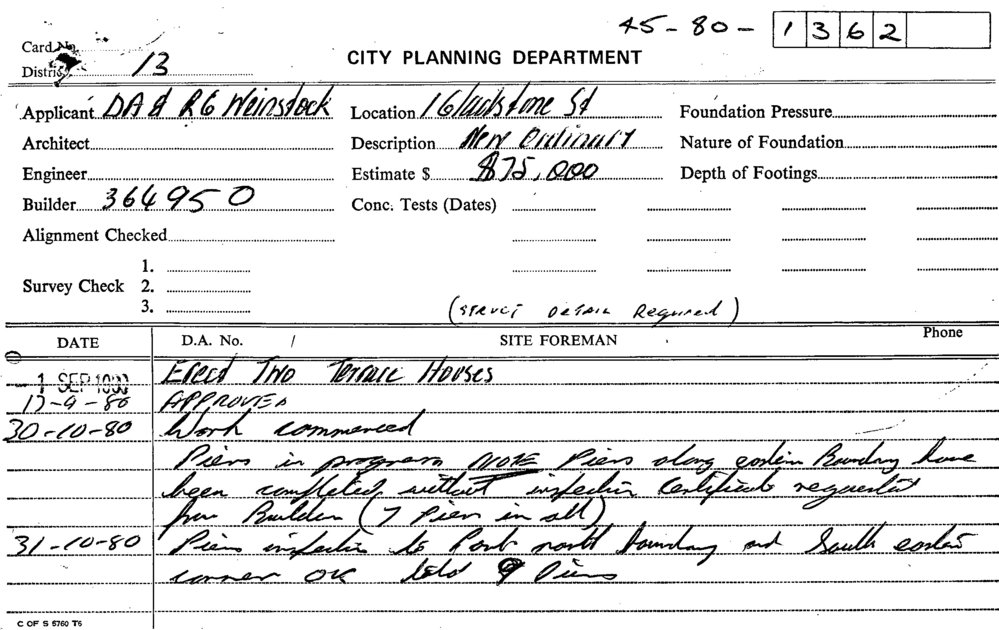 45-80- 1362
Card No.
CITY PLANNING DEPARTMENT
District 13
Applicant DA & RG Weinstock Location 1 Gladstone St Foundation Pressure
Architect Description New Ordinary Nature of Foundation
Engineer Estimate $ $75,000 Depth of Footings
Builder 364950 Conc. Tests (Dates)
Alignment Checked
1.
Survey Check 2.
3.
(STRUCT DETAIL Required)
DATE D.A. No. / SITE FOREMAN Phone
1 SEP 1980 Erect Two Terrace Houses
17-9-80 APPROVED
30-10-80 Work commenced
Piers in progress NOTE Piers along eastern Boundary have
been completed without inspection Certificate requested
from Builder (7 Piers in all)
31-10-80 Piers inspection to Part north boundary and South eastern
corner OK 9 Piers
C OF S 5760 T6